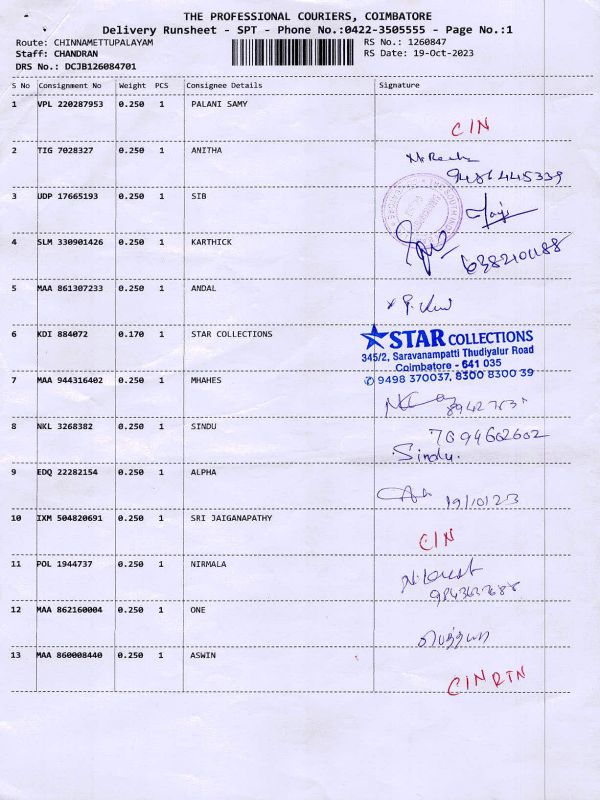 THE PROFESSIONAL COURIERS, COIMBATORE
Delivery Runsheet - SPT - Phone No.:0422-3505555 - Page No.:1
Route: CHINNAMETTUPALAYAM RS No.: 1260847
Staff: CHANDRAN RS Date: 19-Oct-2023
DRS No.: DCJB126084701
S No Consignment No Weight PCS Consignee Details Signature
1 VPL 220287953 0.250 1 PALANI SAMY
CIN
2 TIG 7028327 0.250 1 ANITHA
9486445339
3 UDP 17665193 0.250 1 SIB
THE SOUTH INDIAN
4 SLM 330901426 0.250 1 KARTHICK
6382101188
5 MAA 861307233 0.250 1 ANDAL
6 KDI 884072 0.170 1 STAR COLLECTIONS
STAR COLLECTIONS
345/2, Saravanampatti Thudiyalur Road
Coimbatore - 641 035
✆ 9498 370037, 8300 8300 39
7 MAA 944316402 0.250 1 MHAHES
8 NKL 3268382 0.250 1 SINDU
7094602602
Sindu.
9 EDQ 22282154 0.250 1 ALPHA
19/10/23
10 IXM 504820691 0.250 1 SRI JAIGANAPATHY
CIN
11 POL 1944737 0.250 1 NIRMALA
12 MAA 862160004 0.250 1 ONE
13 MAA 860008440 0.250 1 ASWIN
CIN RTN